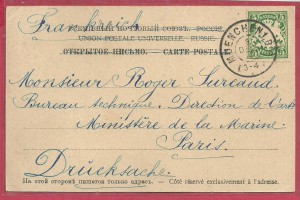 Frankreich
ВСЕМІРНЫЙ ПОЧТОВЫЙ СОЮЗЪ. РОССІЯ.
UNION POSTALE UNIVERSELLE. RUSSIE.
ОТКРЫТОЕ ПИСЬМО. — CARTE POSTALE
MUENCHEN
Monsieur Roger Surcaud
Bureau technique, Direction de l'art
Ministère de la Marine
Paris.
Drücksache.
На этой сторонѣ пишется только адресъ. — Côté réservé exclusivement à l'adresse.